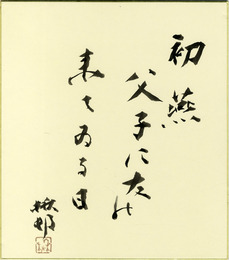 初燕
父子に友の
来てゐる日
楸邨